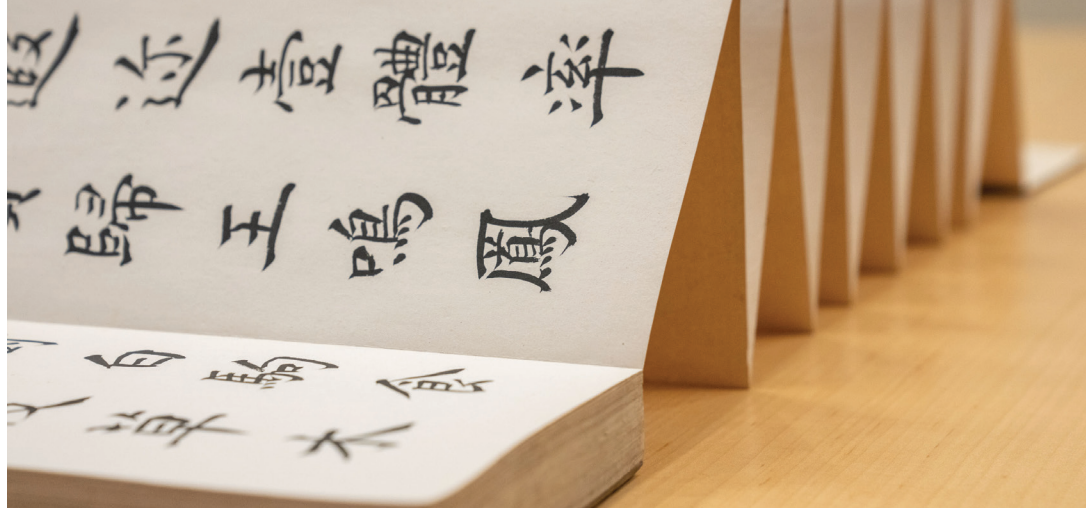 迩壹體率
歸王鳴鳳
白駒食
草木